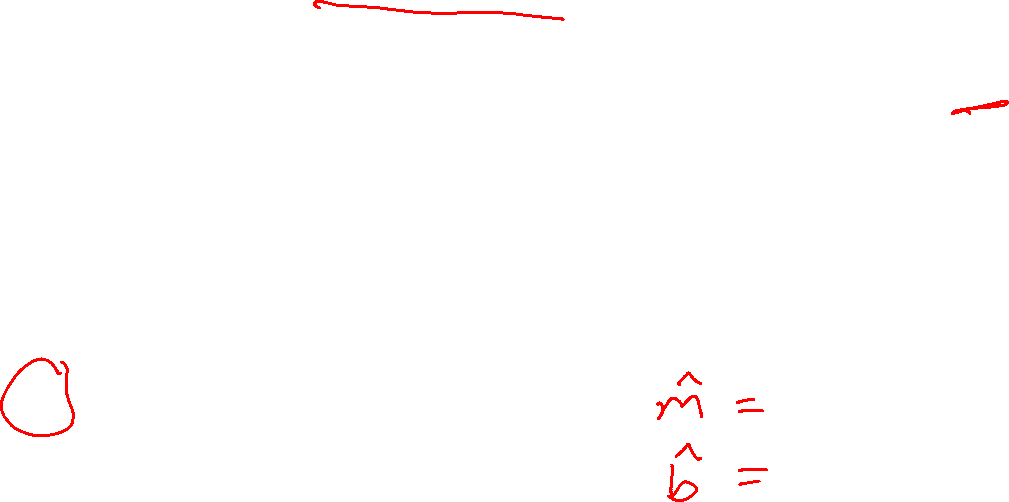 m̂ =
b̂ =